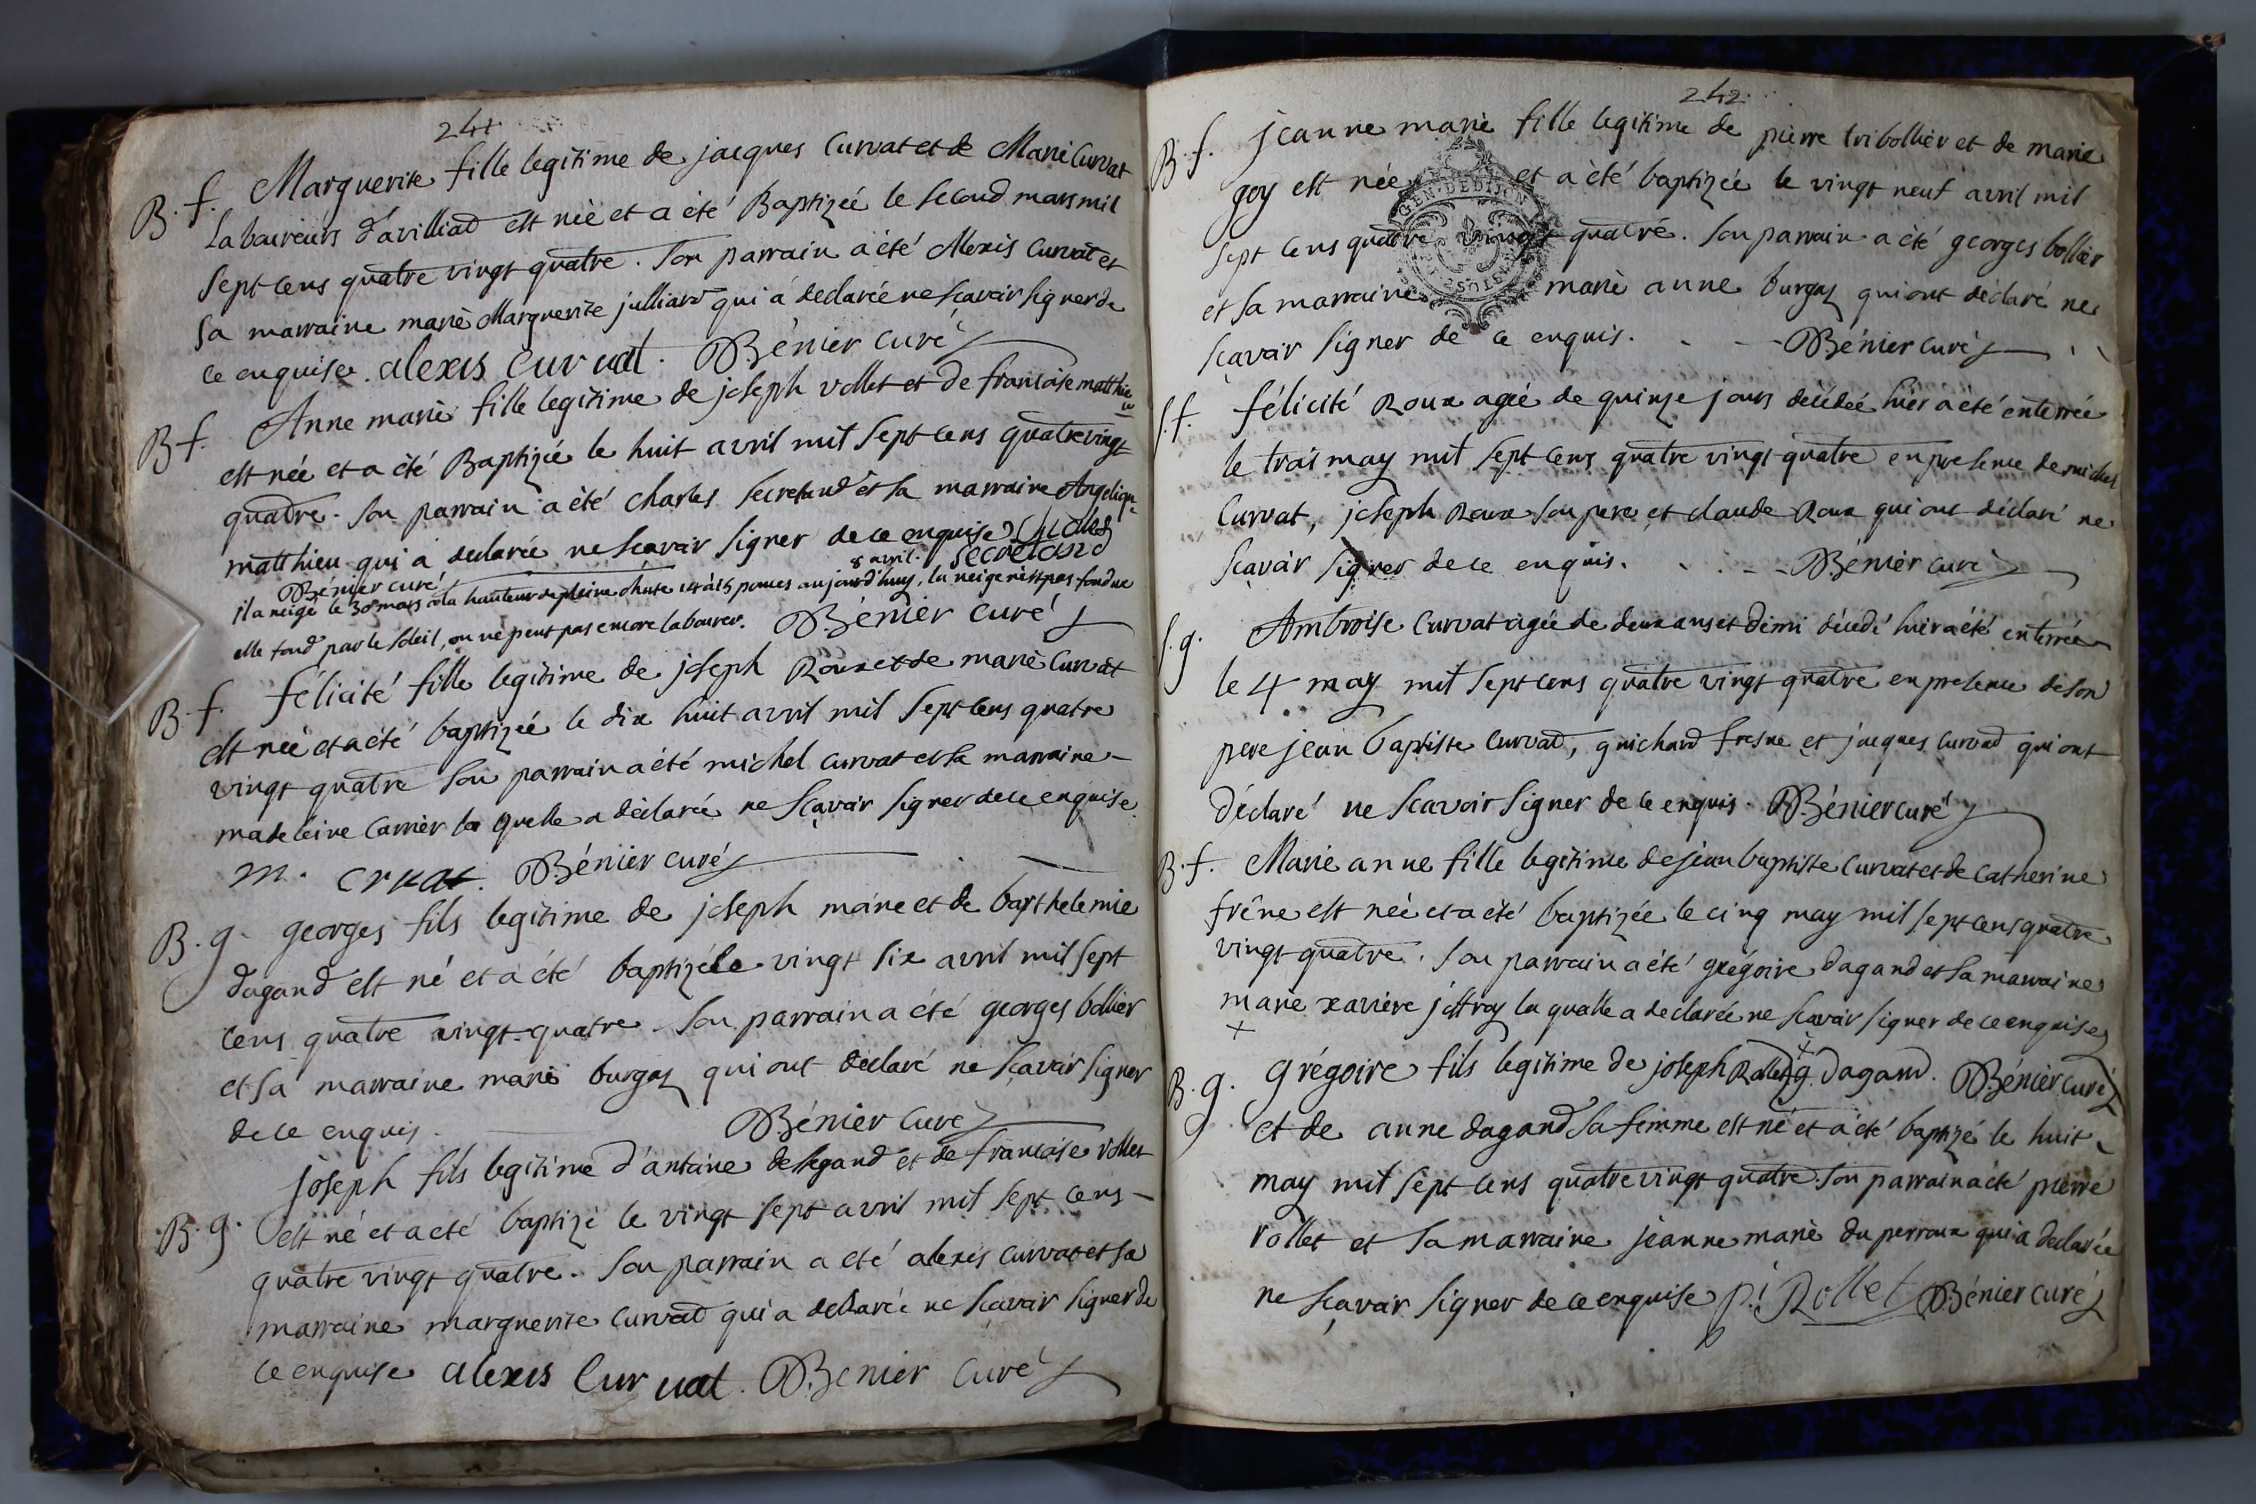 241
B. f. Marguerite fille legitime de jacques Curvat et de Marie Curvat
Laboureurs d'avilliad est neé et a été Baptizeé le second mars mil
sept cens quatre vingt quatre. Son parrain a été Alexis Curvat et
sa marraine marie Marguerite julliard qui a declareé ne scavoir signer de
ce enquise. alexis Cur vat. Bénier Curé
B f. Anne marie fille legitime de joseph vollet et de francoise matthieu
est neé et a été Baptizeé le huit avril mil sept cens quatre vingt
quatre. Son parrain a été charles secretand et sa marraine Angelique
matthieu qui a declareé ne scavoir signer de ce enquise charles
Bénier curé 8 avril. secretand
il a neigé le 30e mars à la hauteur de pleine chute 14 à 15 pouces aujourd'huy, la neige n'est pas fondue
elle fond par le soleil, on ne peut pas encore labourer. Bénier Curé
B. f. félicité fille legitime de joseph Roux et de marie Curvat
est neé et a été baptizeé le dix huit avril mil sept cens quatre
vingt quatre son parrain a été michel curvat et sa marraine
madeleine Carrier la quelle a déclareé ne sçavoir signer de ce enquise
m. crvat. Bénier curé
B. g. georges fils legitime de joseph máne et de barthelemie
dagand est né et a été baptizé le vingt six avril mil sept
cens quatre vingt quatre. Son parrain a été georges bollier
et sa marraine marie burgaz qui ont declaré ne sçavoir signer
de ce enquis. Bénier Curé
B. g. joseph fils legitime d'antoine delegand et de francoise vollet
est né et a été baptizé le vingt sept avril mil sept cens
quatre vingt quatre. Son parrain a été alexis curvat et sa
marraine marguerite Curvat qui a déclareé ne scavoir signer de
ce enquise alexis Cur vat. Bénier Curé
242
B. f. jeanne marie fille legitime de pierre tribollier et de marie
goy est neé et a été baptizeé le vingt neuf avril mil
sept cens quatre vingt quatre. Son parrain a été georges bollier
et sa marraine marie anne burgaz qui ont declaré ne
scavoir signer de ce enquis. Bénier curé
GEN. DE DIJON
S. f. félicité Roux ageé de quinze jours décédeé hier a été enterreé
le trois may mil sept cens quatre vingt quatre en presence de michel
Curvat, joseph Roux son pere et claude Roux qui ont déclaré ne
sçavoir signer de ce enquis. Bénier curé
S. g. Ambroise Curvat ageé de deux ans et demi décédé hier a été enterreé
le 4 may mil sept cens quatre vingt quatre en presence de son
pere jean baptiste Curvat, guichard fresne et jacques curvat qui ont
déclaré ne scavoir signer de ce enquis. Bénier curé
B. f. Marie anne fille legitime de jean baptiste Curvat et de Catherine
frêne est neé et a été baptizeé le cinq may mil sept cens quatre
vingt quatre. Son parrain a été grégoire dagand et sa marraine
marie xaviere joffray la quelle a declareé ne scavoir signer de ce enquise
+ + g. dagand. Bénier curé
B. g. Grégoire fils legitime de joseph Rollet
et de anne dagand sa femme est né et a été baptizé le huit
may mil sept cens quatre vingt quatre. Son parrain a été pierre
rollet et sa marraine jeanne marie du perroux qui a declareé
ne sçavoir signer de ce enquise pi Rollet Bénier curé